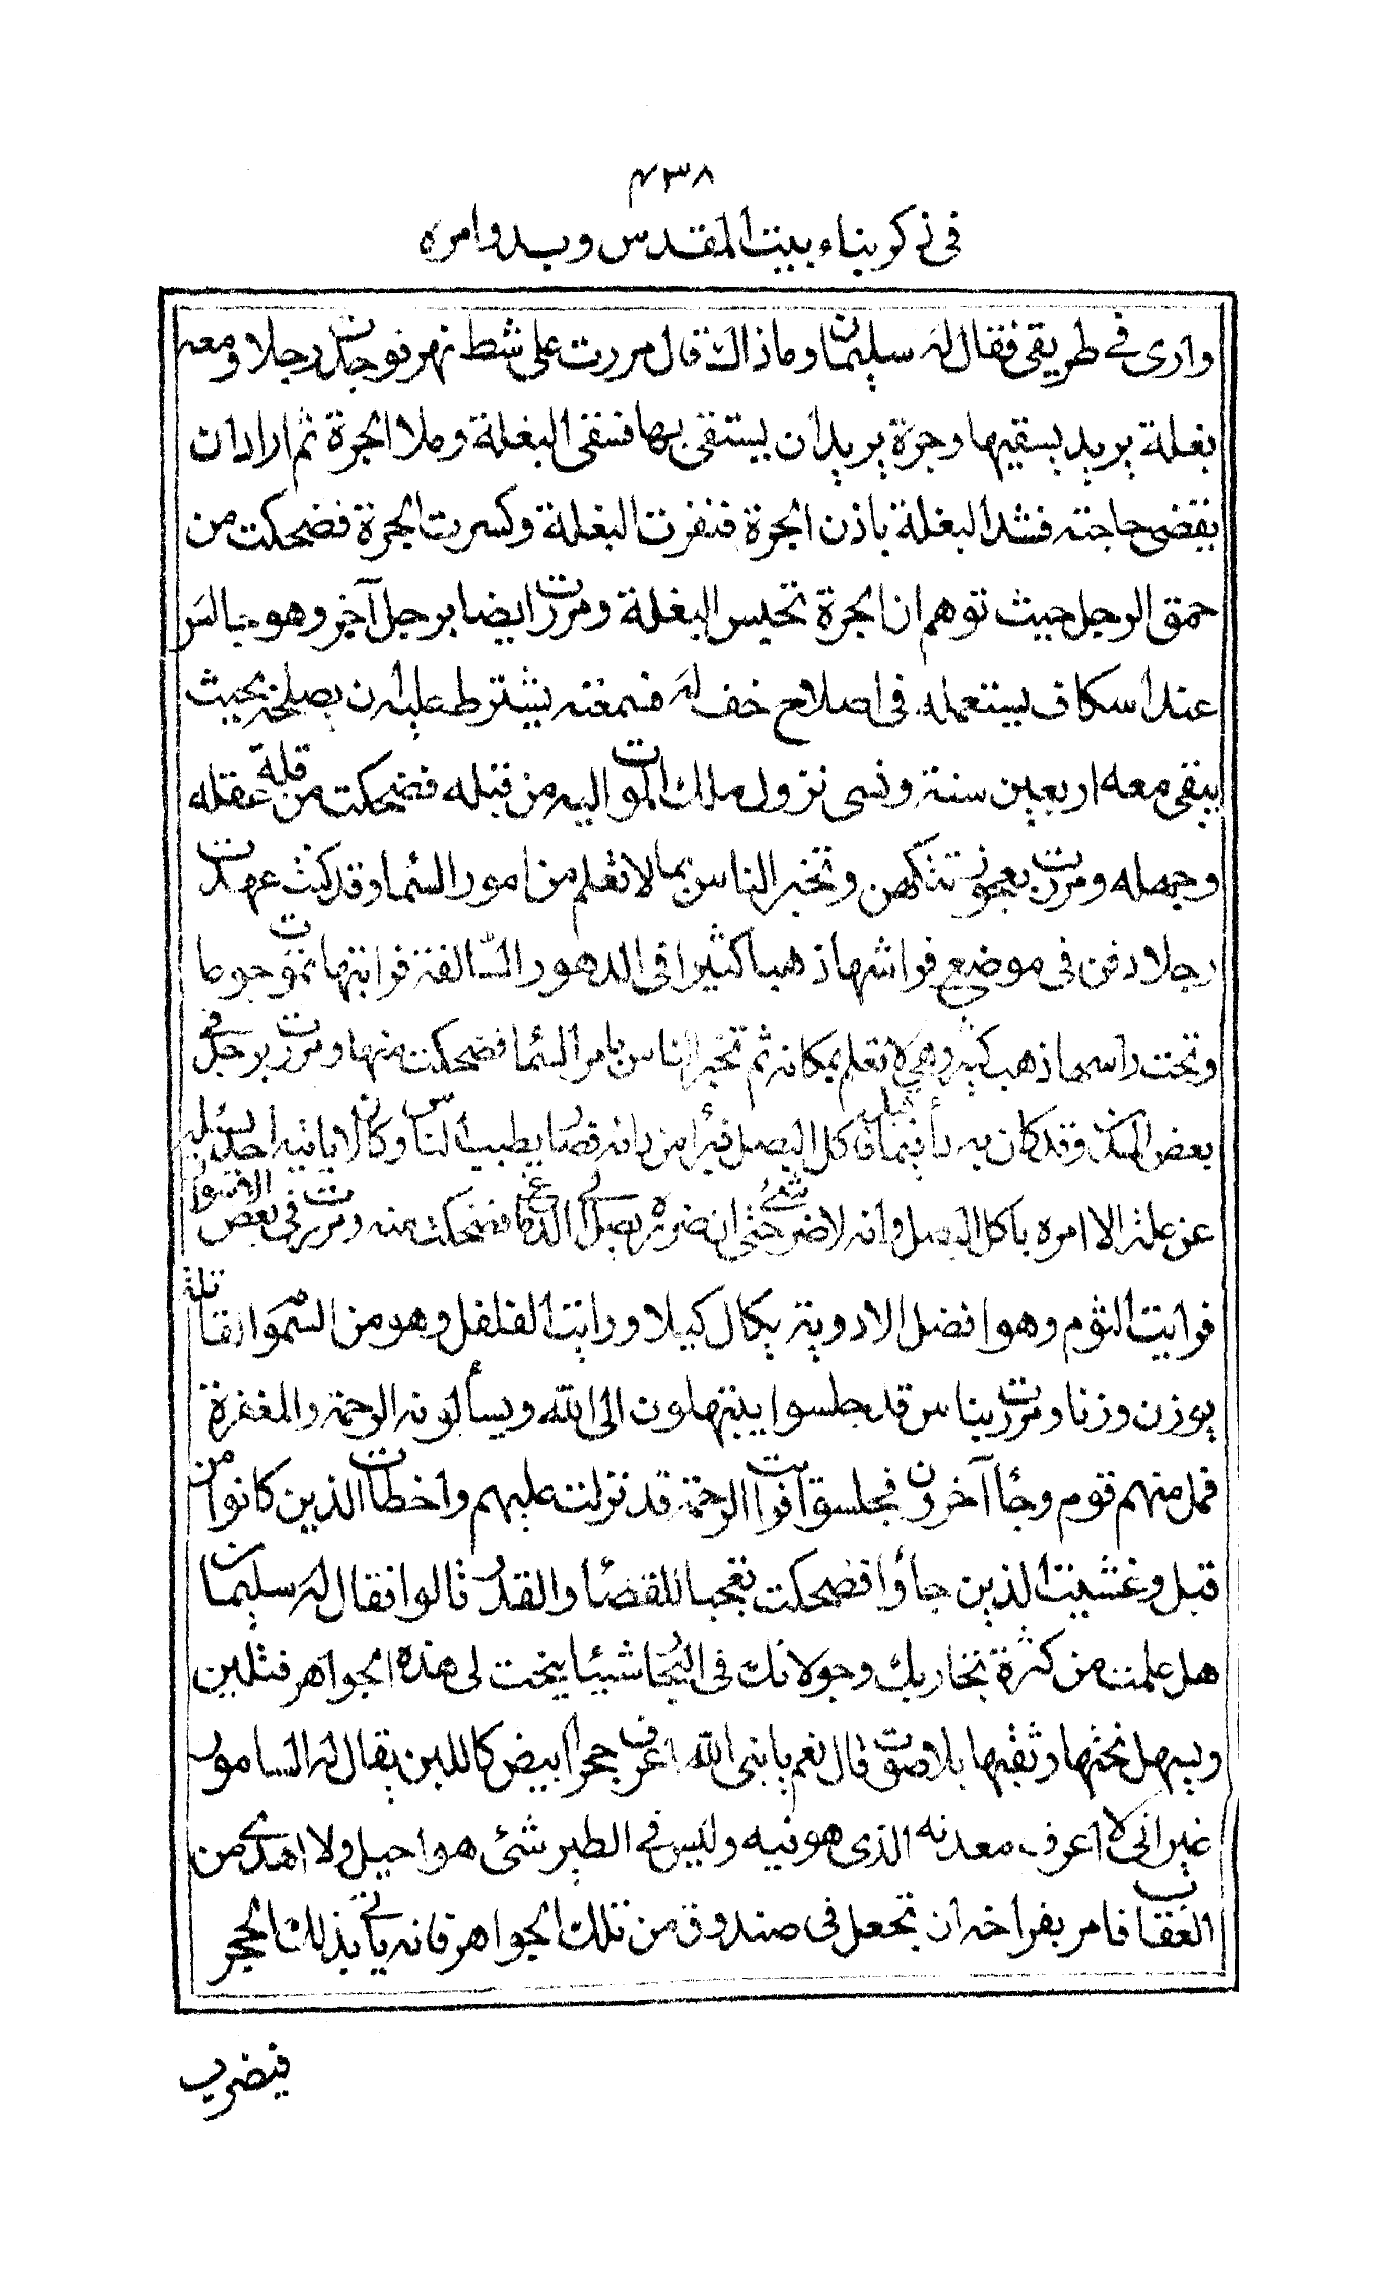 ۴۳۸
في ذكر بناء بيت المقدس وبدو امره
وارى في طريقي فقال له سليمان وما ذاك قال مررت على شط نهر فوجدت رجلا ومعه
بغلة يريد يسقيها وجرة يريد ان يستقى بها فسقى البغلة وملا الجرة ثم اراد ان
يقضى حاجته فشد البغلة باذن الجرة فنفرت البغلة وكسرت الجرة فضحكت من
حمق الرجل حيث توهم ان الجرة تحبس البغلة ومررت ايضا برجل آخر وهو جالس
عند اسكاف يستعمله في اصلاح خف له فسمعته يشترط عليه ان يصلحه بحيث
يبقى معه اربعين سنة ونسى نزول ملك الموت اليه من قبله فضحكت من قلة عقله
وجهله ومررت بعجوز تتكهن وتخبر الناس بما لا تعلم من امور السما وقد كنت عهدت
رجلا دفن في موضع فراشها ذهبا كثيرا في الدهور السالفة فرايتها تموت جوعا
وتحت راسها ذهب كثير وهي لا تعلم بمكانه ثم تخبر الناس بامر السما فضحكت منها ومررت برجل في
بعض المدن وقد كان به دأ فيما قيل فاكل البصل فبرأ من دائه فصار يطبب الناس وكان لا ياتيه احد يسئله
عن علة الا امره باكل البصل وانه لاضر شئ حتى ان ضره يصل الى الدماغ فضحكت منه ومررت في بعض الاسواق
فرايت الثوم وهو افضل الادوية يكال كيلا ورايت الفلفل وهو من السموم القاتلة
يوزن وزنا ومررت بناس قد جلسوا يبتهلون الى الله ويسألونه الرحمة والمغفرة
فمل منهم قوم وجأ آخرون فجلسوا فرايت الرحمة قد نزلت عليهم واخطات الذين كانوا من
قبل وغشيت الذين جاؤا فضحكت تعجبا للقضا والقدر قالوا فقال له سليمان
هل علمت من كثرة تجاربك وجولانك في البحار شيئا ينحت لى هذه الجواهر فتلين
ويسهل نحتها وثقبها بلا صوت قال نعم يا نبي الله اعرف حجرا ابيض كاللبن يقال له السامور
غير انى لا اعرف معدنه الذى هو فيه وليس في الطير شئ هو احيل ولا اهدى من
العقاب فامر بفراخه ان تجعل في صندوق من تلك الجواهر فانه ياتي بذلك الحجر
فيضرب